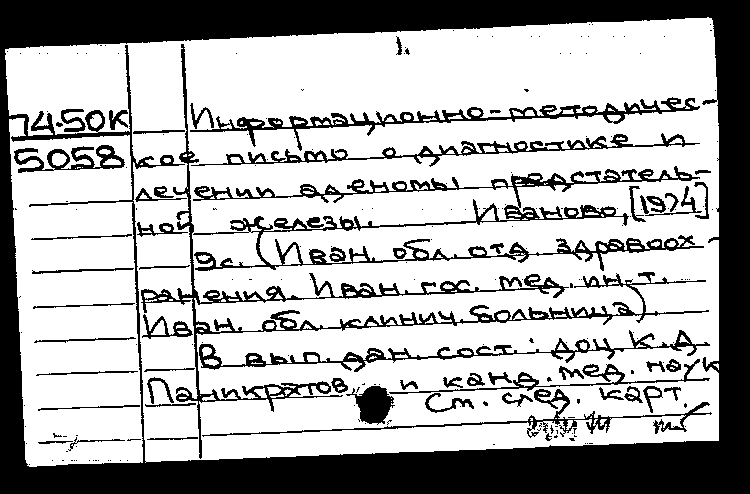 1.
74-50К Информационно-методичес-
5058 кое письмо о диагностике и
лечении аденомы предстатель-
ной железы. Иваново, [1974].
9с. (Иван. обл. отд. здравоох-
ранения. Иван. гос. мед. ин-т.
Иван. обл. клинич. больница).
В вып. дан. сост.: доц. К.Д.
Паникратов и канд. мед. наук
См. след. карт.